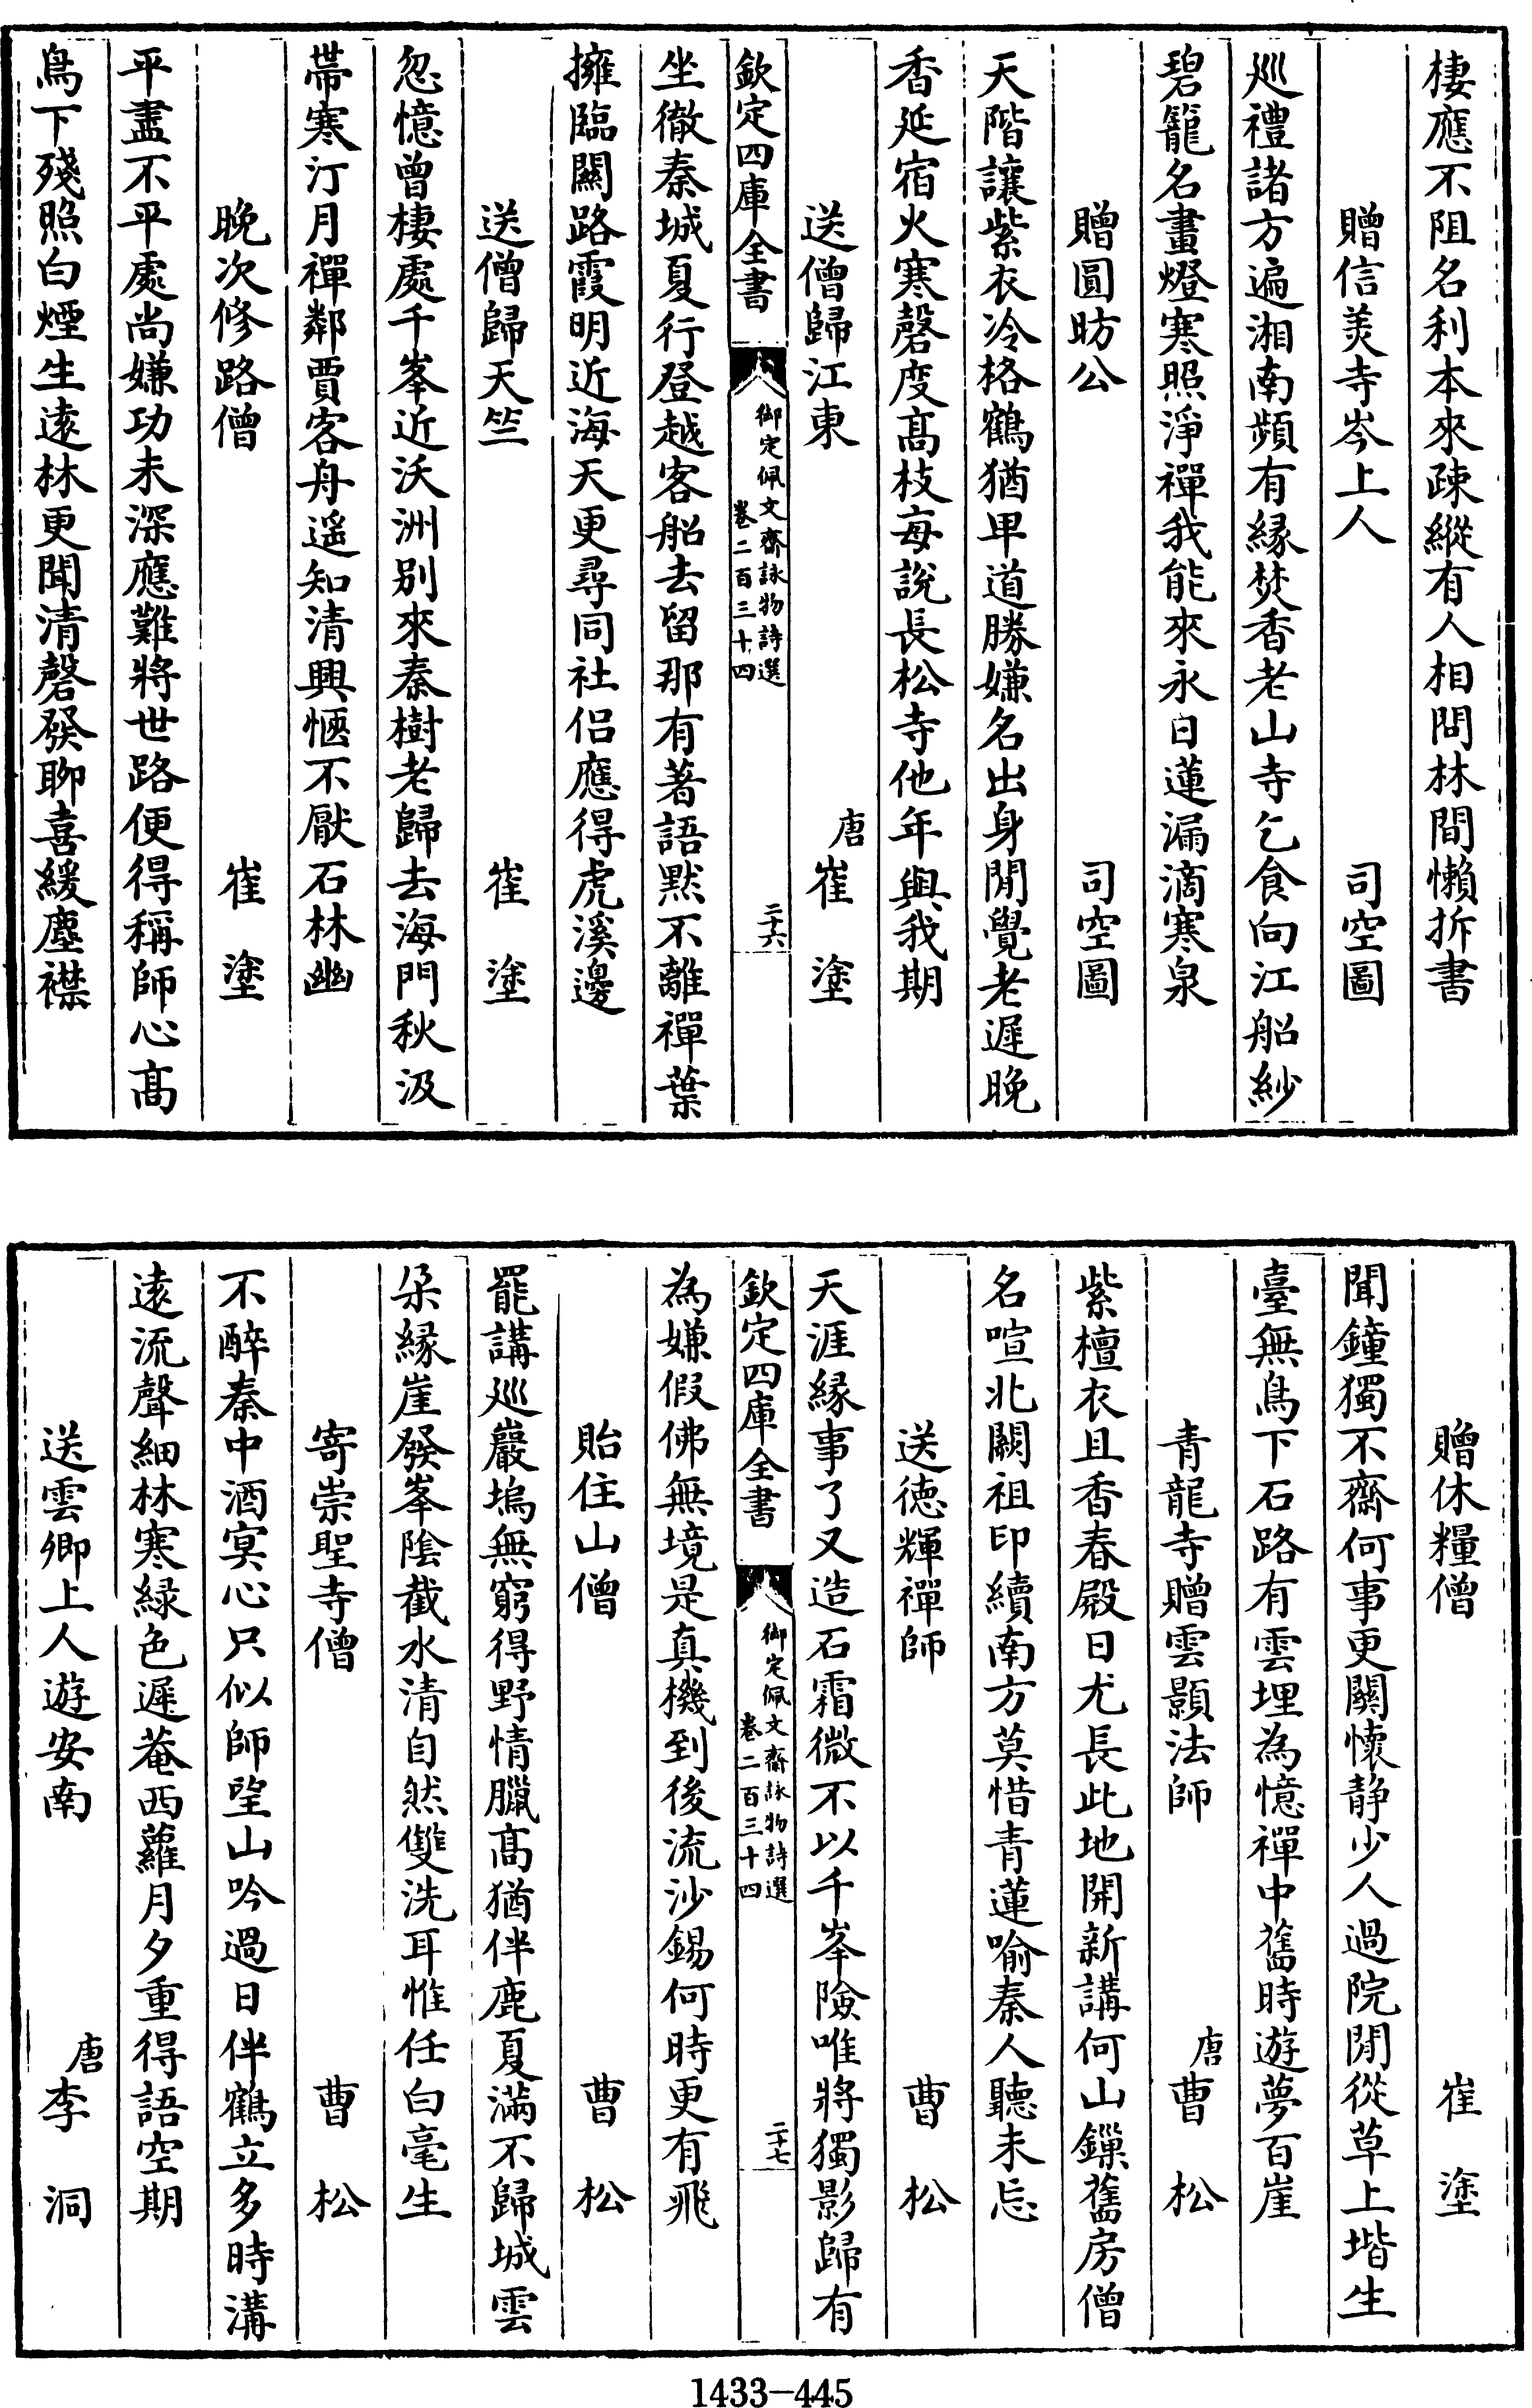 棲應不阻名利本來疎縱有人相問林間懶拆書
贈信美寺岑上人　司空圖
巡禮諸方遍湘南頻有縁焚香老山寺乞食向江船紗
碧籠名畫燈寒照淨禪我能來永日蓮漏滴寒泉
贈圓昉公　司空圖
天階讓紫衣冷格鶴猶卑道勝嫌名出身閒覺老遲晚
香延宿火寒磬度髙枝每説長松寺他年與我期
送僧歸江東　唐崔塗
欽定四庫全書　御定佩文齋詠物詩選　卷二百三十四　二十六
坐徹秦城夏行登越客船去留那有著語黙不離禪葉
擁臨關路霞明近海天更尋同社侣應得虎溪邊
送僧歸天竺　崔塗
忽憶曽棲處千峯近沃洲别來秦樹老歸去海門秋汲
帶寒汀月禪鄰賈客舟遥知清興愜不厭石林幽
晚次修路僧　崔塗
平盡不平處尚嫌功未深應難將世路便得稱師心髙
鳥下殘照白煙生逺林更聞清磬發聊喜緩塵襟
贈休糧僧　崔塗
聞鐘獨不齋何事更關懷静少人過院閒從草上堦生
臺無鳥下石路有雲埋為憶禪中舊時遊夢百崖
青龍寺贈雲顥法師　唐曹松
紫檀衣且香春殿日尤長此地開新講何山鏁舊房僧
名喧北闕祖印續南方莫惜青蓮喻秦人聽未忘
送徳輝禪師　曹松
天涯縁事了又造石霜微不以千峯險唯將獨影歸有
欽定四庫全書　御定佩文齋詠物詩選　卷二百三十四　二十七
為嫌假佛無境是真機到後流沙錫何時更有飛
貽住山僧　曹松
罷講巡巖塢無窮得野情臘髙猶伴鹿夏滿不歸城雲
朵縁崖發峯陰截水清自然雙洗耳惟任白毫生
寄崇聖寺僧　曹松
不醉秦中酒冥心只似師望山吟過日伴鶴立多時溝
逺流聲細林寒緑色遲菴西蘿月夕重得語空期
送雲卿上人遊安南　唐李洞
1433-445